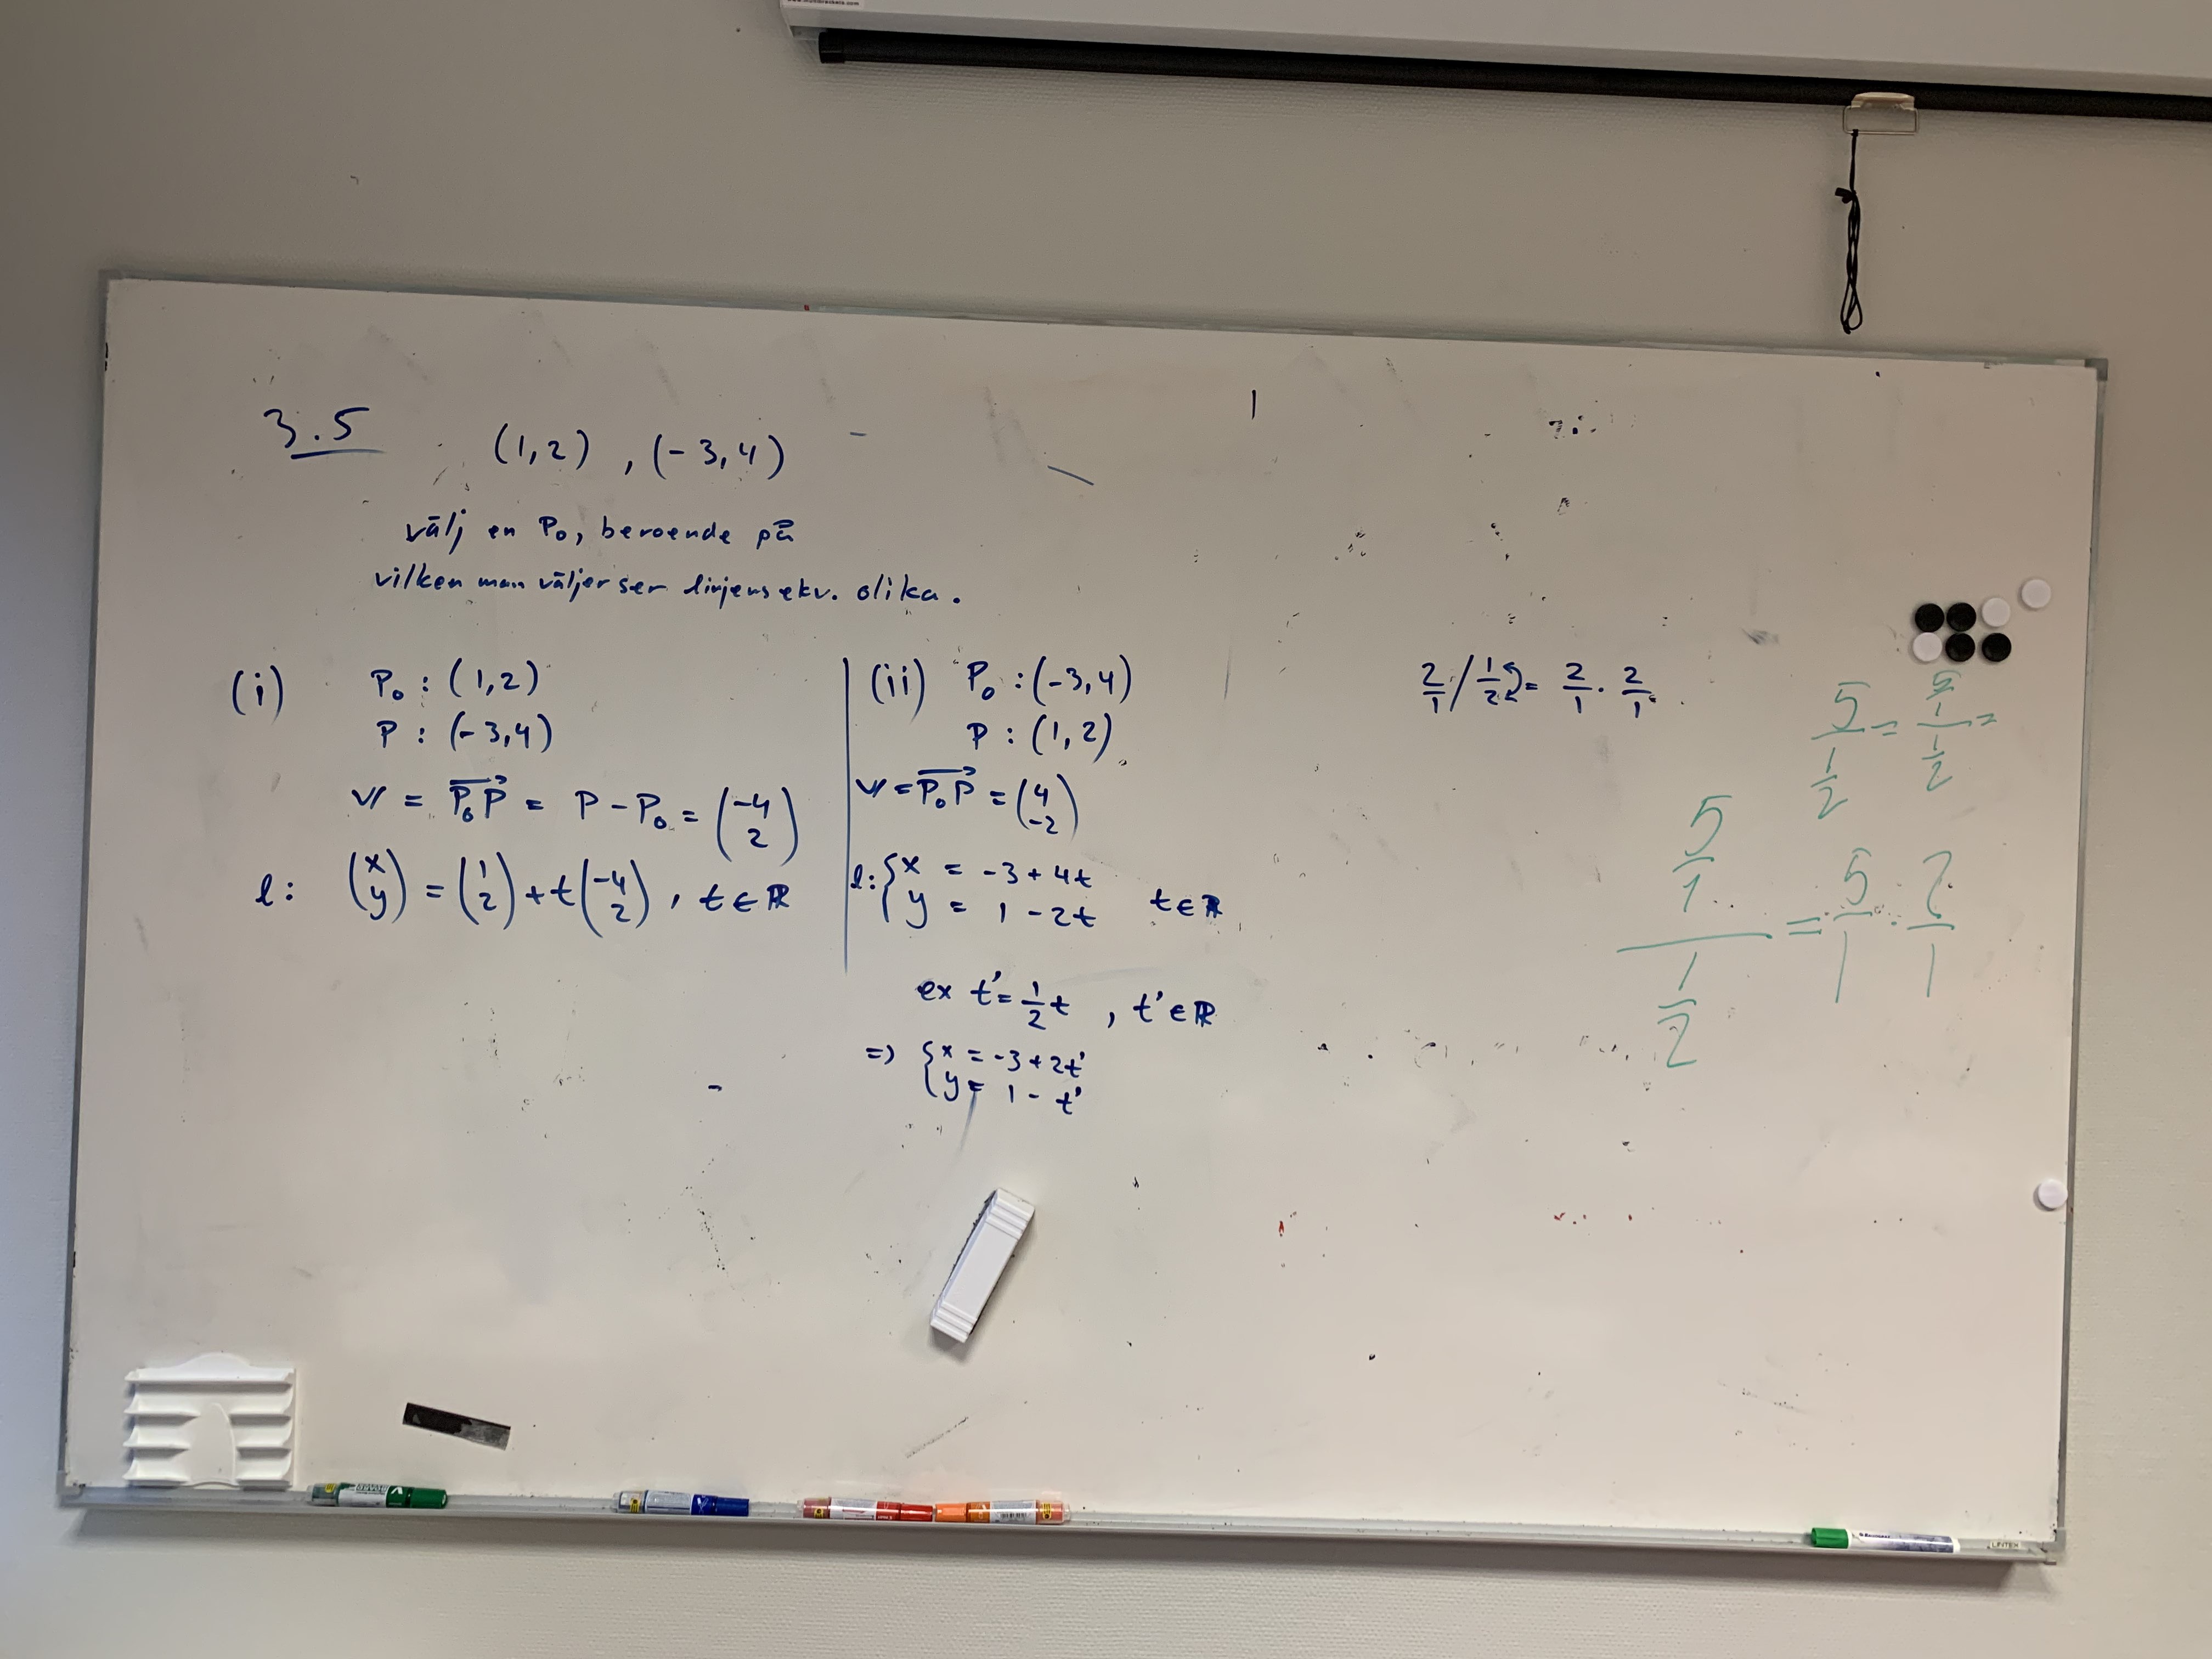 3.5 (1,2) , (-3,4)
välj en P₀, beroende på
vilken man väljer ser linjens ekv. olika.
(i) P₀ : (1,2)
P : (-3,4)
v = P₀P = P - P₀ = (-4 2)
l: (x y) = (1 2) + t(-4 2) , t ∈ ℝ
(ii) P₀ : (-3,4)
P : (1,2)
v = P₀P = (4 -2)
l: { x = -3 + 4t
y = 1 - 2t t ∈ ℝ
ex t' = 1/2 t , t' ∈ ℝ
=> { x = -3 + 2t'
y = 1 - t'
2/1 / 1/2 = 2/1 · 2/1
5/(1/2) = (5/1)/(1/2) =
(5/1)/(1/2) = 5/1 · 2/1